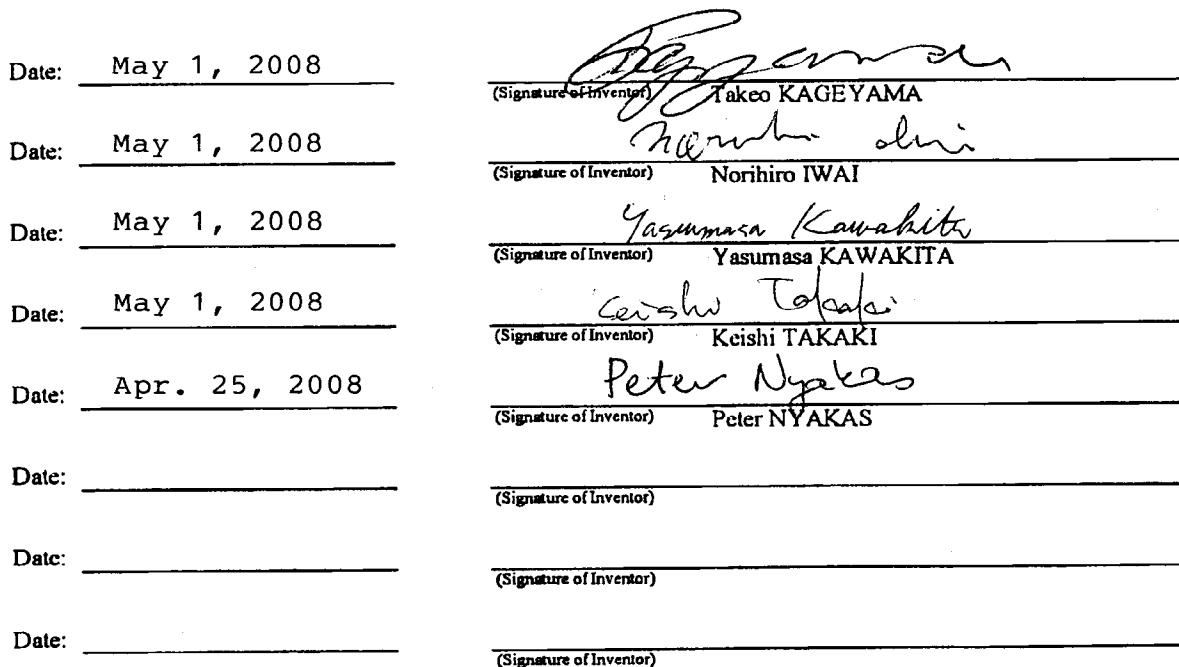 Date: May 1, 2008
(Signature of Inventor) Takeo KAGEYAMA
Date: May 1, 2008
(Signature of Inventor) Norihiro IWAI
Date: May 1, 2008 Yasumasa Kawakita
(Signature of Inventor) Yasumasa KAWAKITA
Date: May 1, 2008 Takaki
(Signature of Inventor) Keishi TAKAKI
Date: Apr. 25, 2008 Peter Nyakas
(Signature of Inventor) Peter NYAKAS
Date:
(Signature of Inventor)
Date:
(Signature of Inventor)
Date:
(Signature of Inventor)